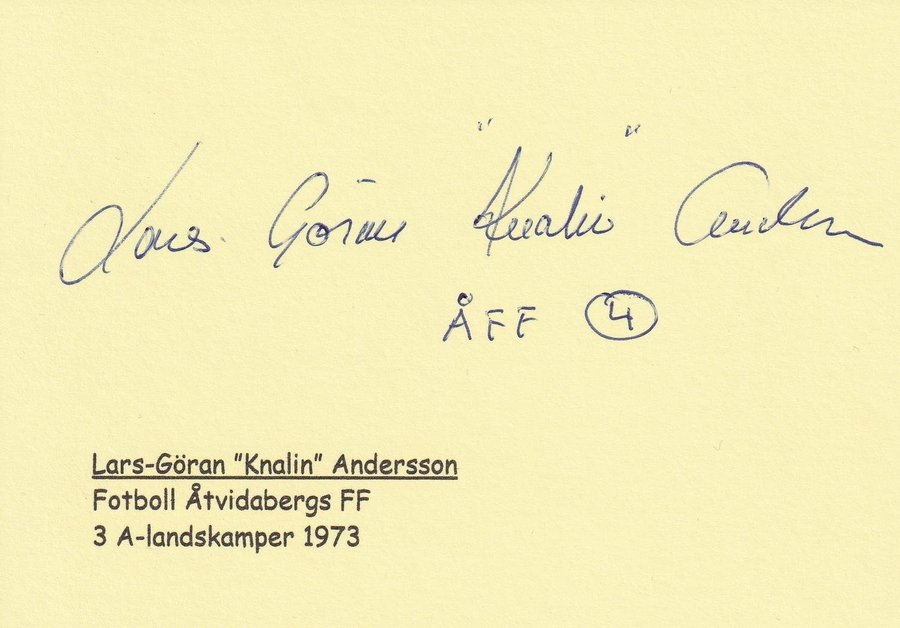 Lars-Göran "Knalin" Andersson
ÅFF 4
Lars-Göran "Knalin" Andersson
Fotboll Åtvidabergs FF
3 A-landskamper 1973